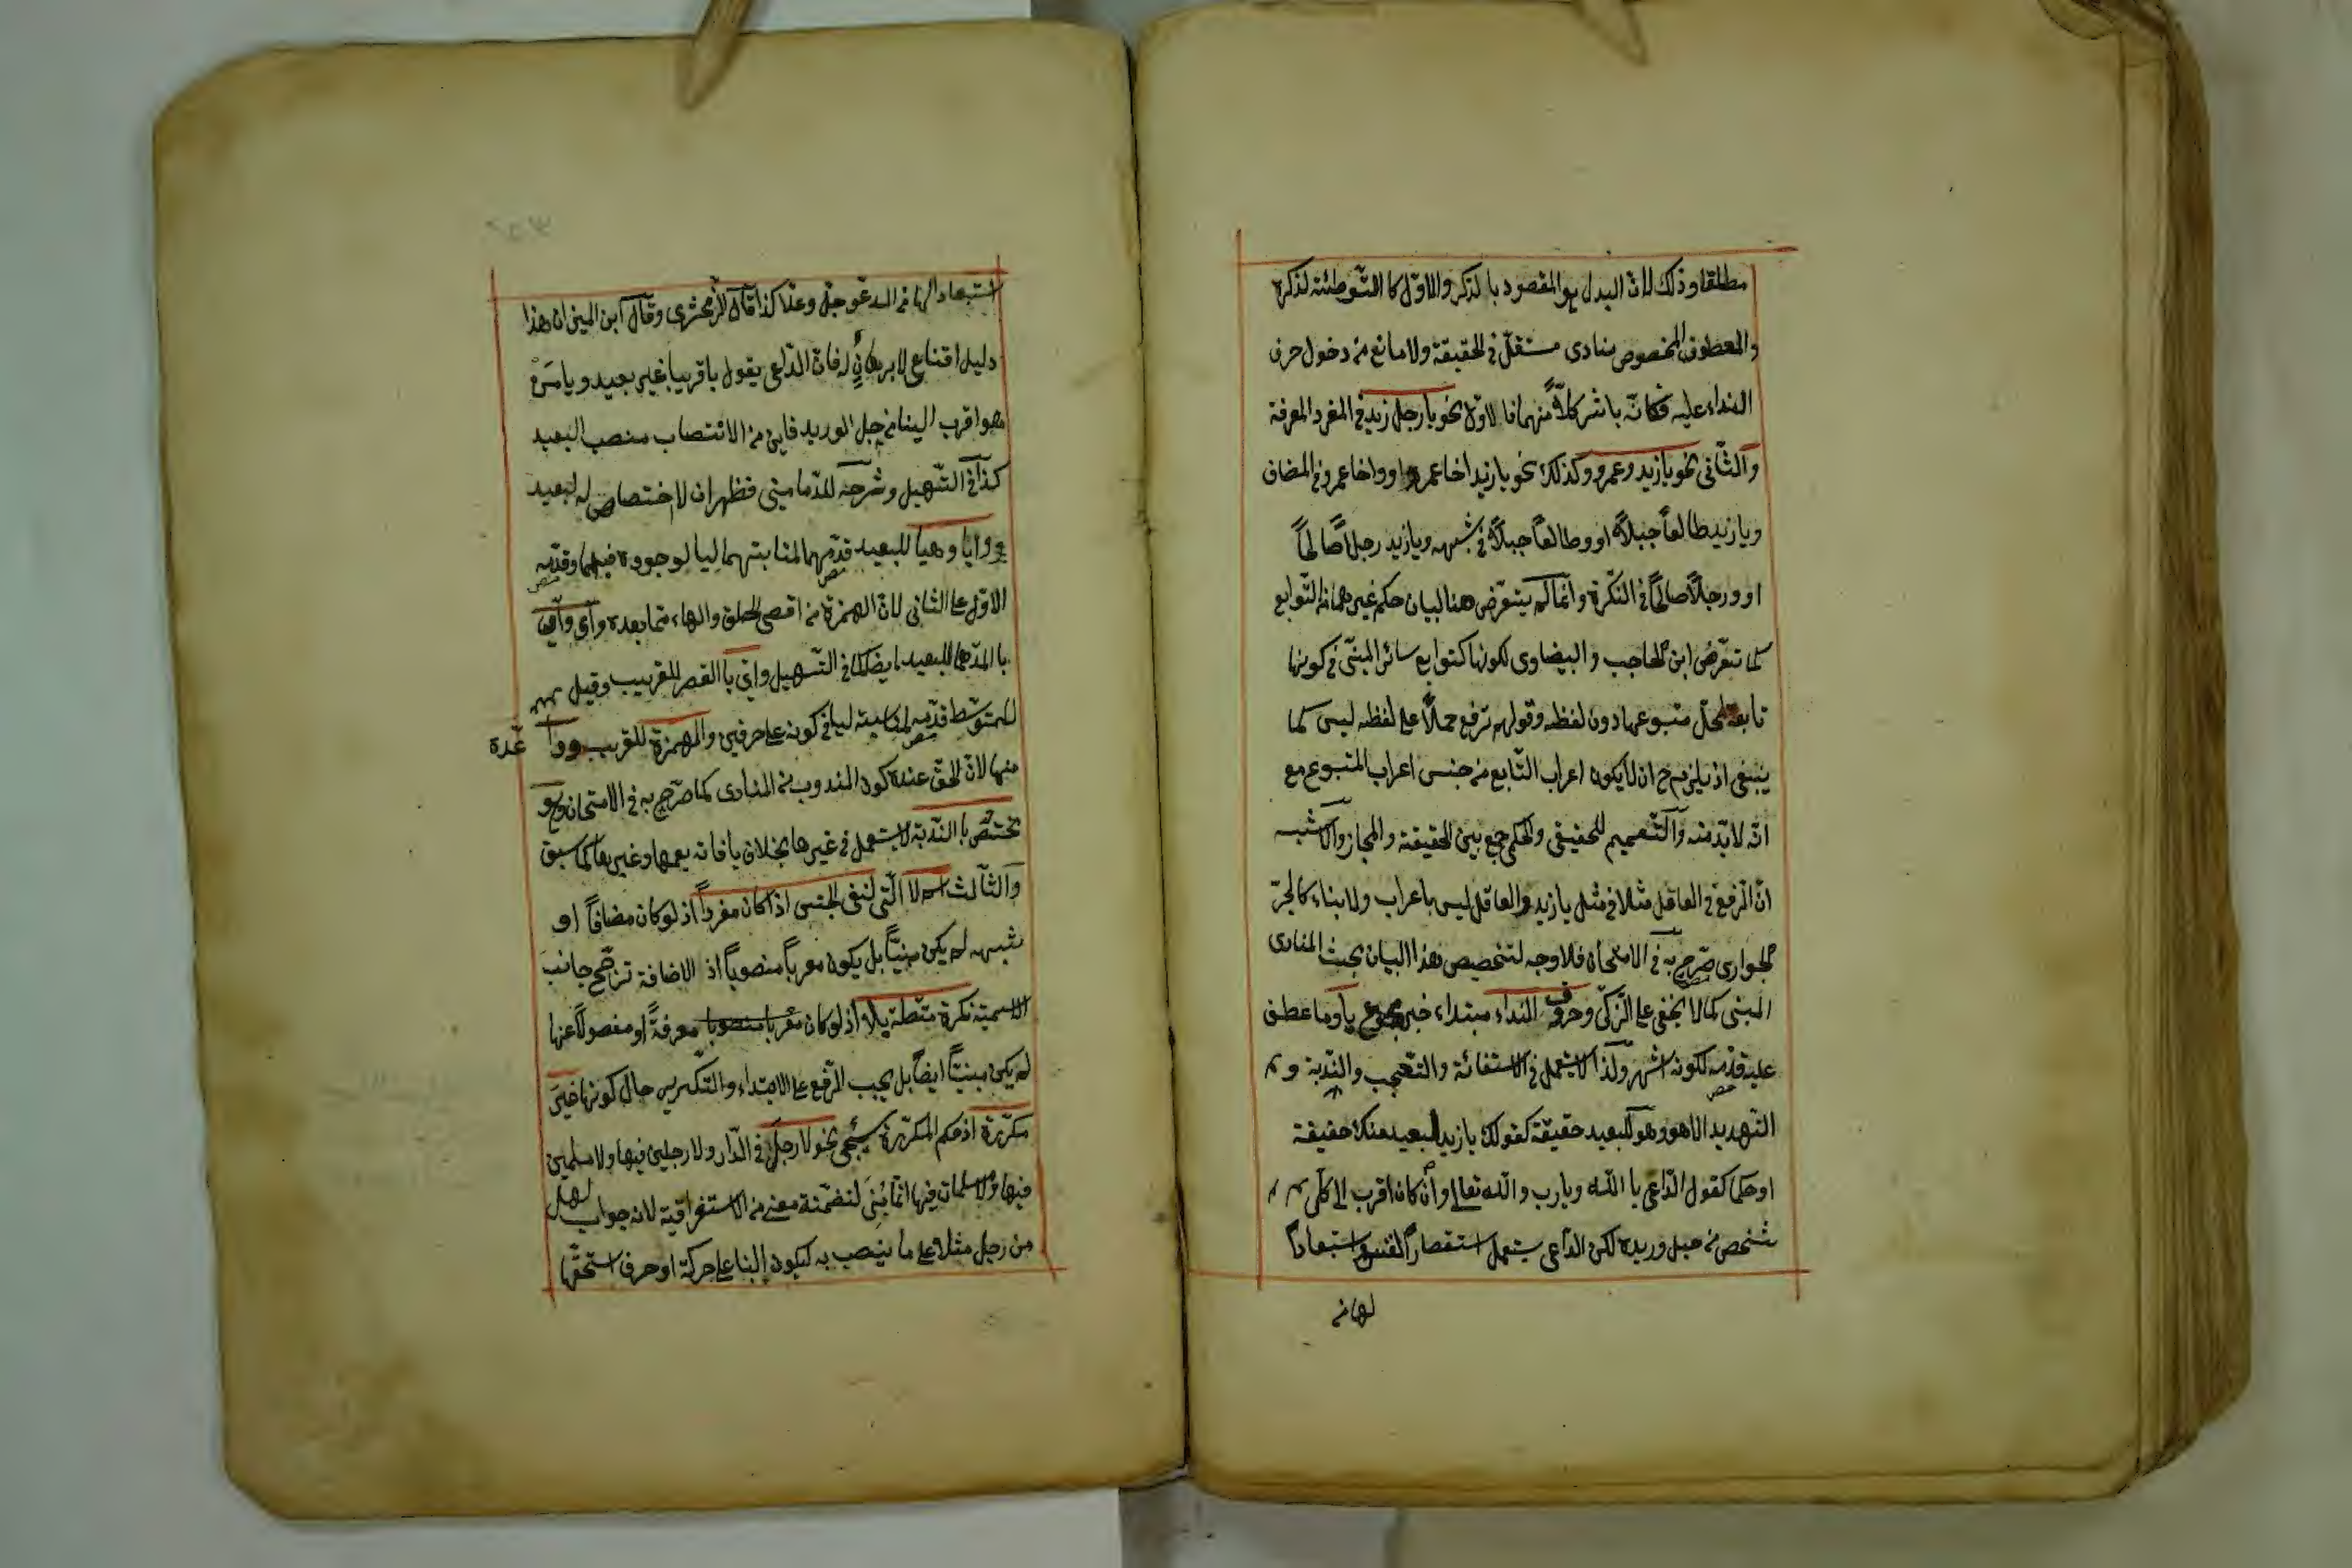 مطلقا وذلك لانّ البدل هو المقصود بالذكر والاوّل كالتّوطئة لذكره
والمعطوف المخصوص منادى مستقلّ في الحقيقة ولا مانع من دخول حرف
النداء عليه فكانّه باشر كلاًّ منهما فالاوّل نحو يا رجل زيد في المفرد المعرفة
والثّاني نحو يا زيد وعمرو وكذلك نحو يا زيد اخا عمرو او واخا عمرو في المضاف
ويا زيد طالعاً جبلاً او وطالعاً جبلاً في شبهه ويا زيد رجلاً صالحاً
او ورجلاً صالحاً في النكرة وانّما لم يتعرّض هنا لبيان حكم غيرهما من التّوابع
كما تعرّض ابن الحاجب والبيضاوى لكونها كتوابع سائر المبنىّ في كونها
تابعة لمحلّ متبوعها دون لفظه وقولهم ترفع حملاً على لفظه ليس كما
ينبغي اذ يلزم ح ان لا يكون اعراب التّابع من جنس اعراب المتبوع مع
انّه لا بدّ منه والتّعميم للحقيقى والحكمى جمع بين الحقيقة والمجاز والاشبه
انّ الرّفع في العاقل مثلا في مثل يا زيد والعاقل ليس باعراب ولا بناء كالجرّ
الجوارى صرّح به في الامتحان فلا وجه لتخصيص هذا البيان بحث المنادى
المبنى كما لا يخفى على الزّكىّ وحروف النداء مبتداء خبره مجموع يا وما عطف
عليه قدّمه لكونه اشهر ولذا لا يستعمل في الاستغاثة والتّعجب والنّدبة و
التهديد الا هو وهو للبعيد حقيقة كقولك يا زيد لبعيد منك حقيقة
او حكما كقول الدّاعى يا الله ويا رب والله تعالى وان كان اقرب الى كلّ
شخص من حبل وريده لكن الدّاعى يستعمل استقصاراً لنفسه واستبعاداً
لها من
استبعاد لها من الله عزّ وجلّ وعلا كذا قال الزّمخشرى وقال ابن المنير ان هذا
دليل اقناعى لا برهانىّ فانّ الدّاعى يقول يا قريبا غير بعيد ويا من
هو اقرب الينا من حبل الوريد فاين من الانتصاب منصب البعيد
كذا في التّسهيل وشرحه للدّمامينى فظهر ان لا اختصاص له لبعيد
وايا وهيا للبعيد قدّمهما لمناسبتهما ليا لوجوده فيهما وقدّم
الاوّل على الثانى لانّ الهمزة من اقصى الحلق والهاء ممّا بعده وآى وآ
بالمدّ هما للبعيد ايضا كما في التّسهيل واى بالقصر للقريب وقيل
للمتوسّط قدّمه لمناسبته ليا في كونه على حرفين والهمزة للقريب ووا عدّه
منها لانّ الحقّ عنده كون المندوب من المنادى كما صرّح به في الامتحان وهو
تختصّ بالنّدبة لا يستعمل في غيرها بخلاف يا فانه يعمها وغيرها كما سبق
والثالث اسم لا الّتى لنفى الجنس اذا كان مفرداً اذ لو كان مضافاً او
شبهه لم يكن مبنيّاً بل يكون معرباً منصوباً اذ الاضافة ترجّح جانب
الاسميّة نكرة متّصلة بلا اذ لو كان معربا منصوبا معرفةً او مفصولاً عنها
لم يكن مبنيّاً ايضاً بل يجب الرّفع على الابتداء والتّكرير حال كونها غير
مكرّرة اذ حكم المكرّرة سيجئ نحو لا رجل في الدّار ولا رجلين فيها ولا مسلمين
فيها ولا مسلمات فيها انّما بُنِىَ لتضمّنه معنى من الاستغراقية لانه جواب لهل
من رجل مثلا على ما ينصب به ليكون البناء على حركة او حرف استحقّها